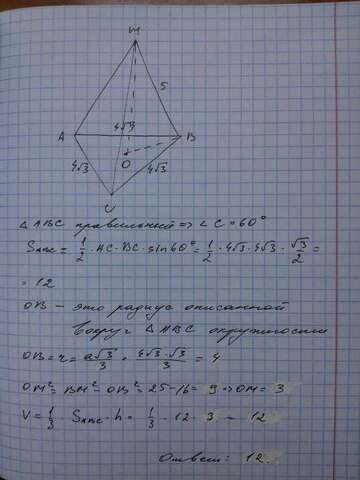 M
5
A
4√3
B
O
4√3
4√3
C
△ABC правильный => ∠C = 60°
Sавс = 1/2 · AC · BC · sin60° = 1/2 · 4√3 · 4√3 · √3/2 =
= 12
OB - это радиус описанной
вокруг △ABC окружности
OB = r = a√3/3 = 4√3 · √3/3 = 4
OM² = BM² - OB² = 25 - 16 = 9 => OM = 3
V = 1/3 · Sавс · h = 1/3 · 12 · 3 = 12
Ответ: 12.